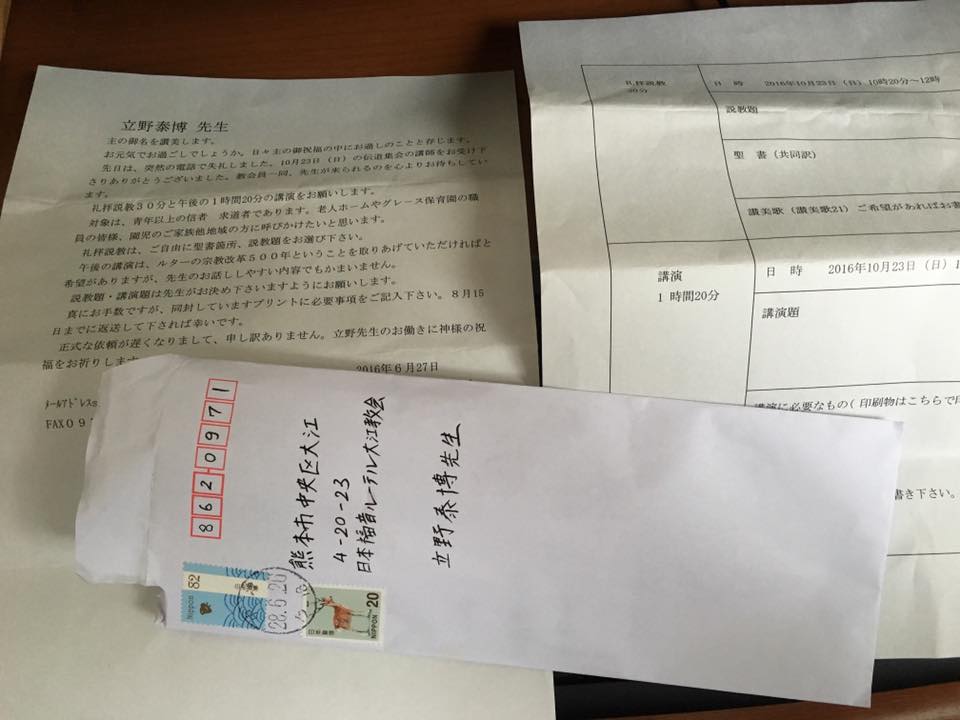 立野泰博 先生
主の御名を讃美します。
お元気でお過ごしでしょうか。日々主の御祝福の中にお過しのことと存じます。
先日は、突然の電話で失礼しました。10月23日（日）の伝道集会の講師をお受け下
さりありがとうございました。教会員一同、先生が来られるのを心よりお待ちしてい
ます。
礼拝説教３０分と午後の１時間20分の講演をお願いします。
対象は、青年以上の信者 求道者であります。老人ホームやグレース保育園の職
員の皆様、園児のご家族他地域の方に呼びかけたいと思います。
礼拝説教は、ご自由に聖書箇所、説教題をお選び下さい。
午後の講演は、ルターの宗教改革５００年ということを取りあげていただければと
希望がありますが、先生のお話ししやすい内容でもかまいません。
説教題・講演題は先生がお決め下さいますようにお願いします。
真にお手数ですが、同封していますプリントに必要事項をご記入下さい。８月15
日までに返送して下されば幸いです。
正式な依頼が遅くなりまして、申し訳ありません。立野先生のお働きに神様の祝
福をお祈りします
2016年６月27日
ﾒｰﾙｱﾄﾞﾚｽs
FAX０９
礼拝説教
30分
日 時 2016年10月23日（日）10時20分～12時
説教題
聖 書（共同訳）
讃美歌（讃美歌21）ご希望があればお書
講演
１時間20分
日 時 2016年10月23日（日）
講演題
講演に必要なもの（印刷物はこちらで印
書き下さい。
8620971
熊本市中央区大江
4-20-23
日本福音ルーテル大江教会
立野泰博先生
NIPPON 82
28.6.20
日本郵便
NIPPON 20